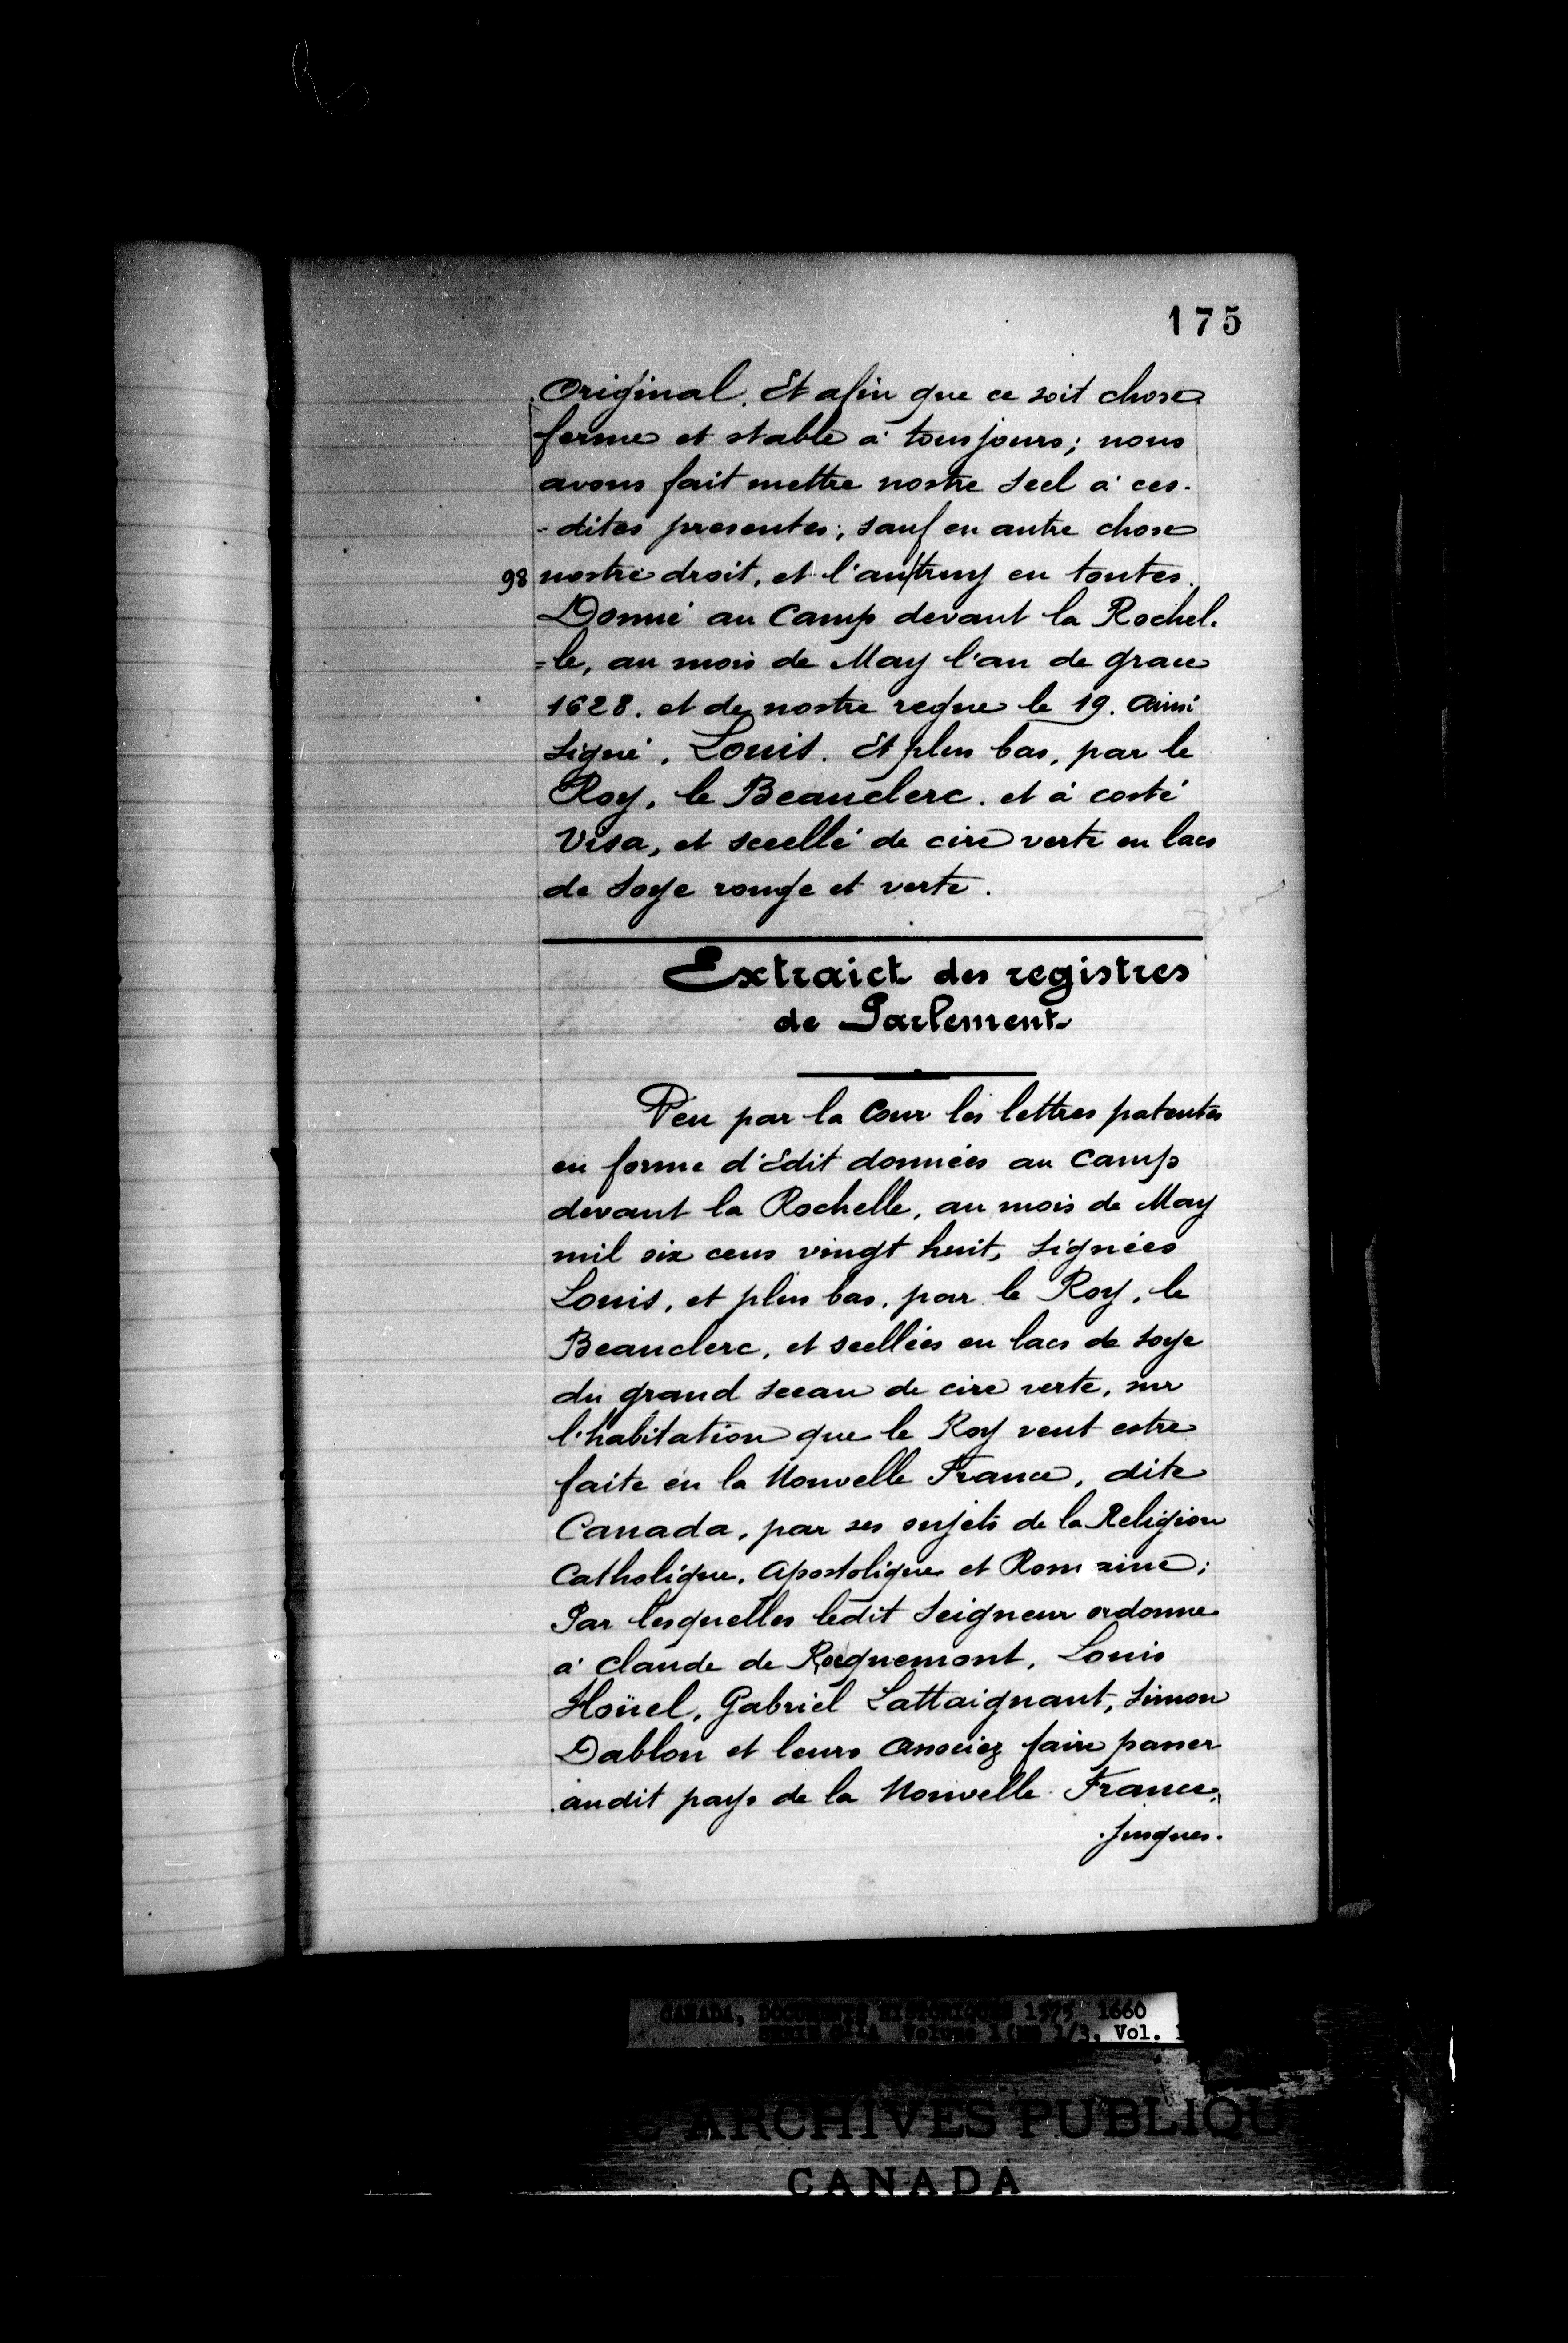 175
Original. Et afin que ce soit chose
ferme et stable à tousjours; nous
avons fait mettre nostre Seel à ces-
-dites presentes; sauf en autre chose
98 nostre droit, et l'autruy en toutes.
Donné au Camp devant la Rochel-
=le, au mois de May l'an de grace
1628. et de nostre regne le 19. ainsi
Signé, Louis. Et plus bas, par le
Roy, le Beauclerc. et à costé
Visa, et scellé de cire verte en lacs
de Soye rouge et verte.
Extraict des registres
de Parlement
Veu par la Cour les lettres patentes
en forme d'Edit données au Camp
devant la Rochelle, au mois de May
mil six cens vingt huit, Signées
Louis, et plus bas, par le Roy, le
Beauclerc, et scellées en lacs de soye
du grand sceau de cire verte, sur
l'habitation que le Roy veut estre
faite en la Nouvelle France, dite
Canada, par ses sujets de la Religion
Catholique, Apostolique et Romaine;
Par lesquelles ledit Seigneur ordonne
à Claude de Roquemont, Louis
Hoüel, Gabriel Lattaignant, Simon
Dablon et leurs Associez faire passer
audit pays de la Nouvelle France,
jusques.
CANADA, DOCUMENTS HISTORIQUES 1575 1660
Vol.
ARCHIVES PUBLIQU
CANADA